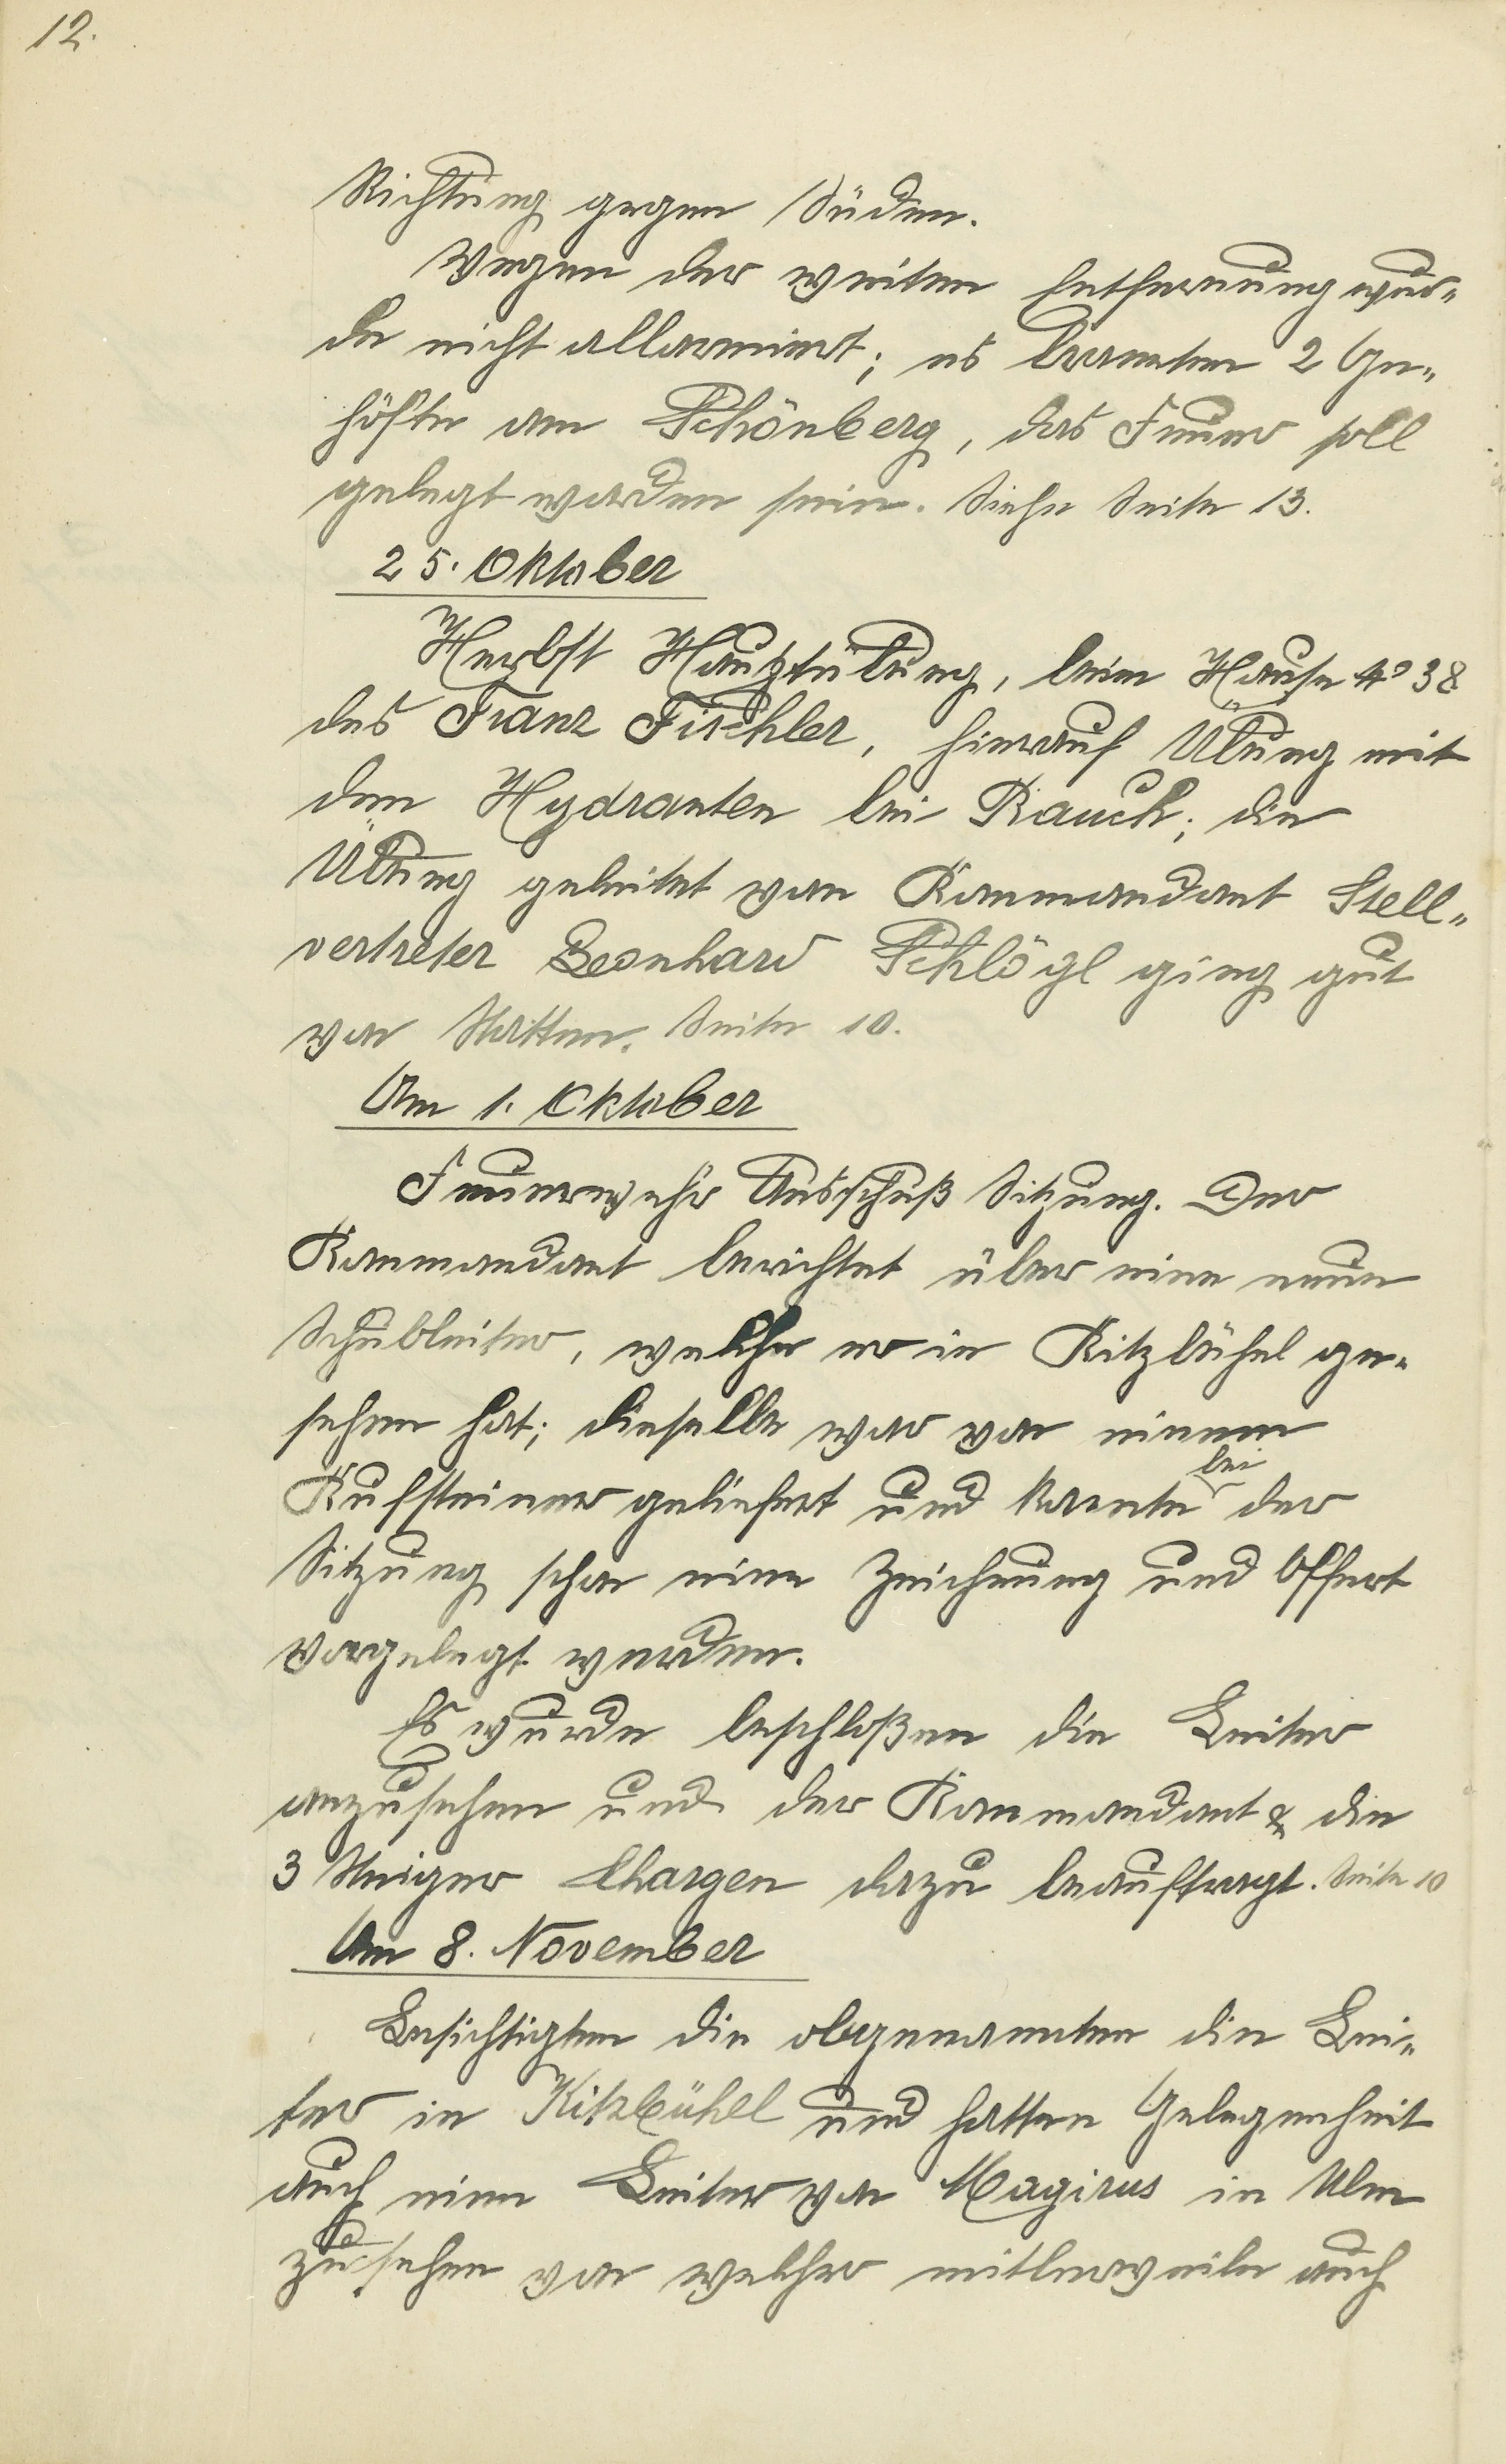 12.
Richtung gegen Süden.
Wegen der weiten Entfernung wur-
de nicht allarmiert; es brannten 2 Ge-
höfte am Schönberg, das Feuer soll
gelegt worden sein. Siehe Seite 13.
25. Oktober
Herbst Hauptübung, beim Hause No 38
des Franz Fischler, hierauf Übung mit
den Hydranten bei Rauch; die
Übung geleitet von Kommandant Stell-
vertreter Leonhard Schlögl ging gut
von Statten. Seite 10.
Am 1. Oktober
Feuerwehr Ausschuß Sitzung. Der
Kommandant berichtet über eine neue
Schubleiter, welche er in Kitzbühel ge-
sehen hat; dieselbe war von einem
Kufsteiner geliefert und konnte bei der
Sitzung schon eine Zeichnung und Offert
vorgelegt werden.
Es wurde beschloßen die Leiter
anzusehen und der Kommandant & die
3 Steiger Chargen dazu beauftragt. Seite 10
Am 8. November
Besichtigten die obgenannten die Lei-
ter in Kitzbühel und hatten Gelegenheit
auch eine Leiter von Magirus in Ulm
zu sehen von welcher mitlerweile auch